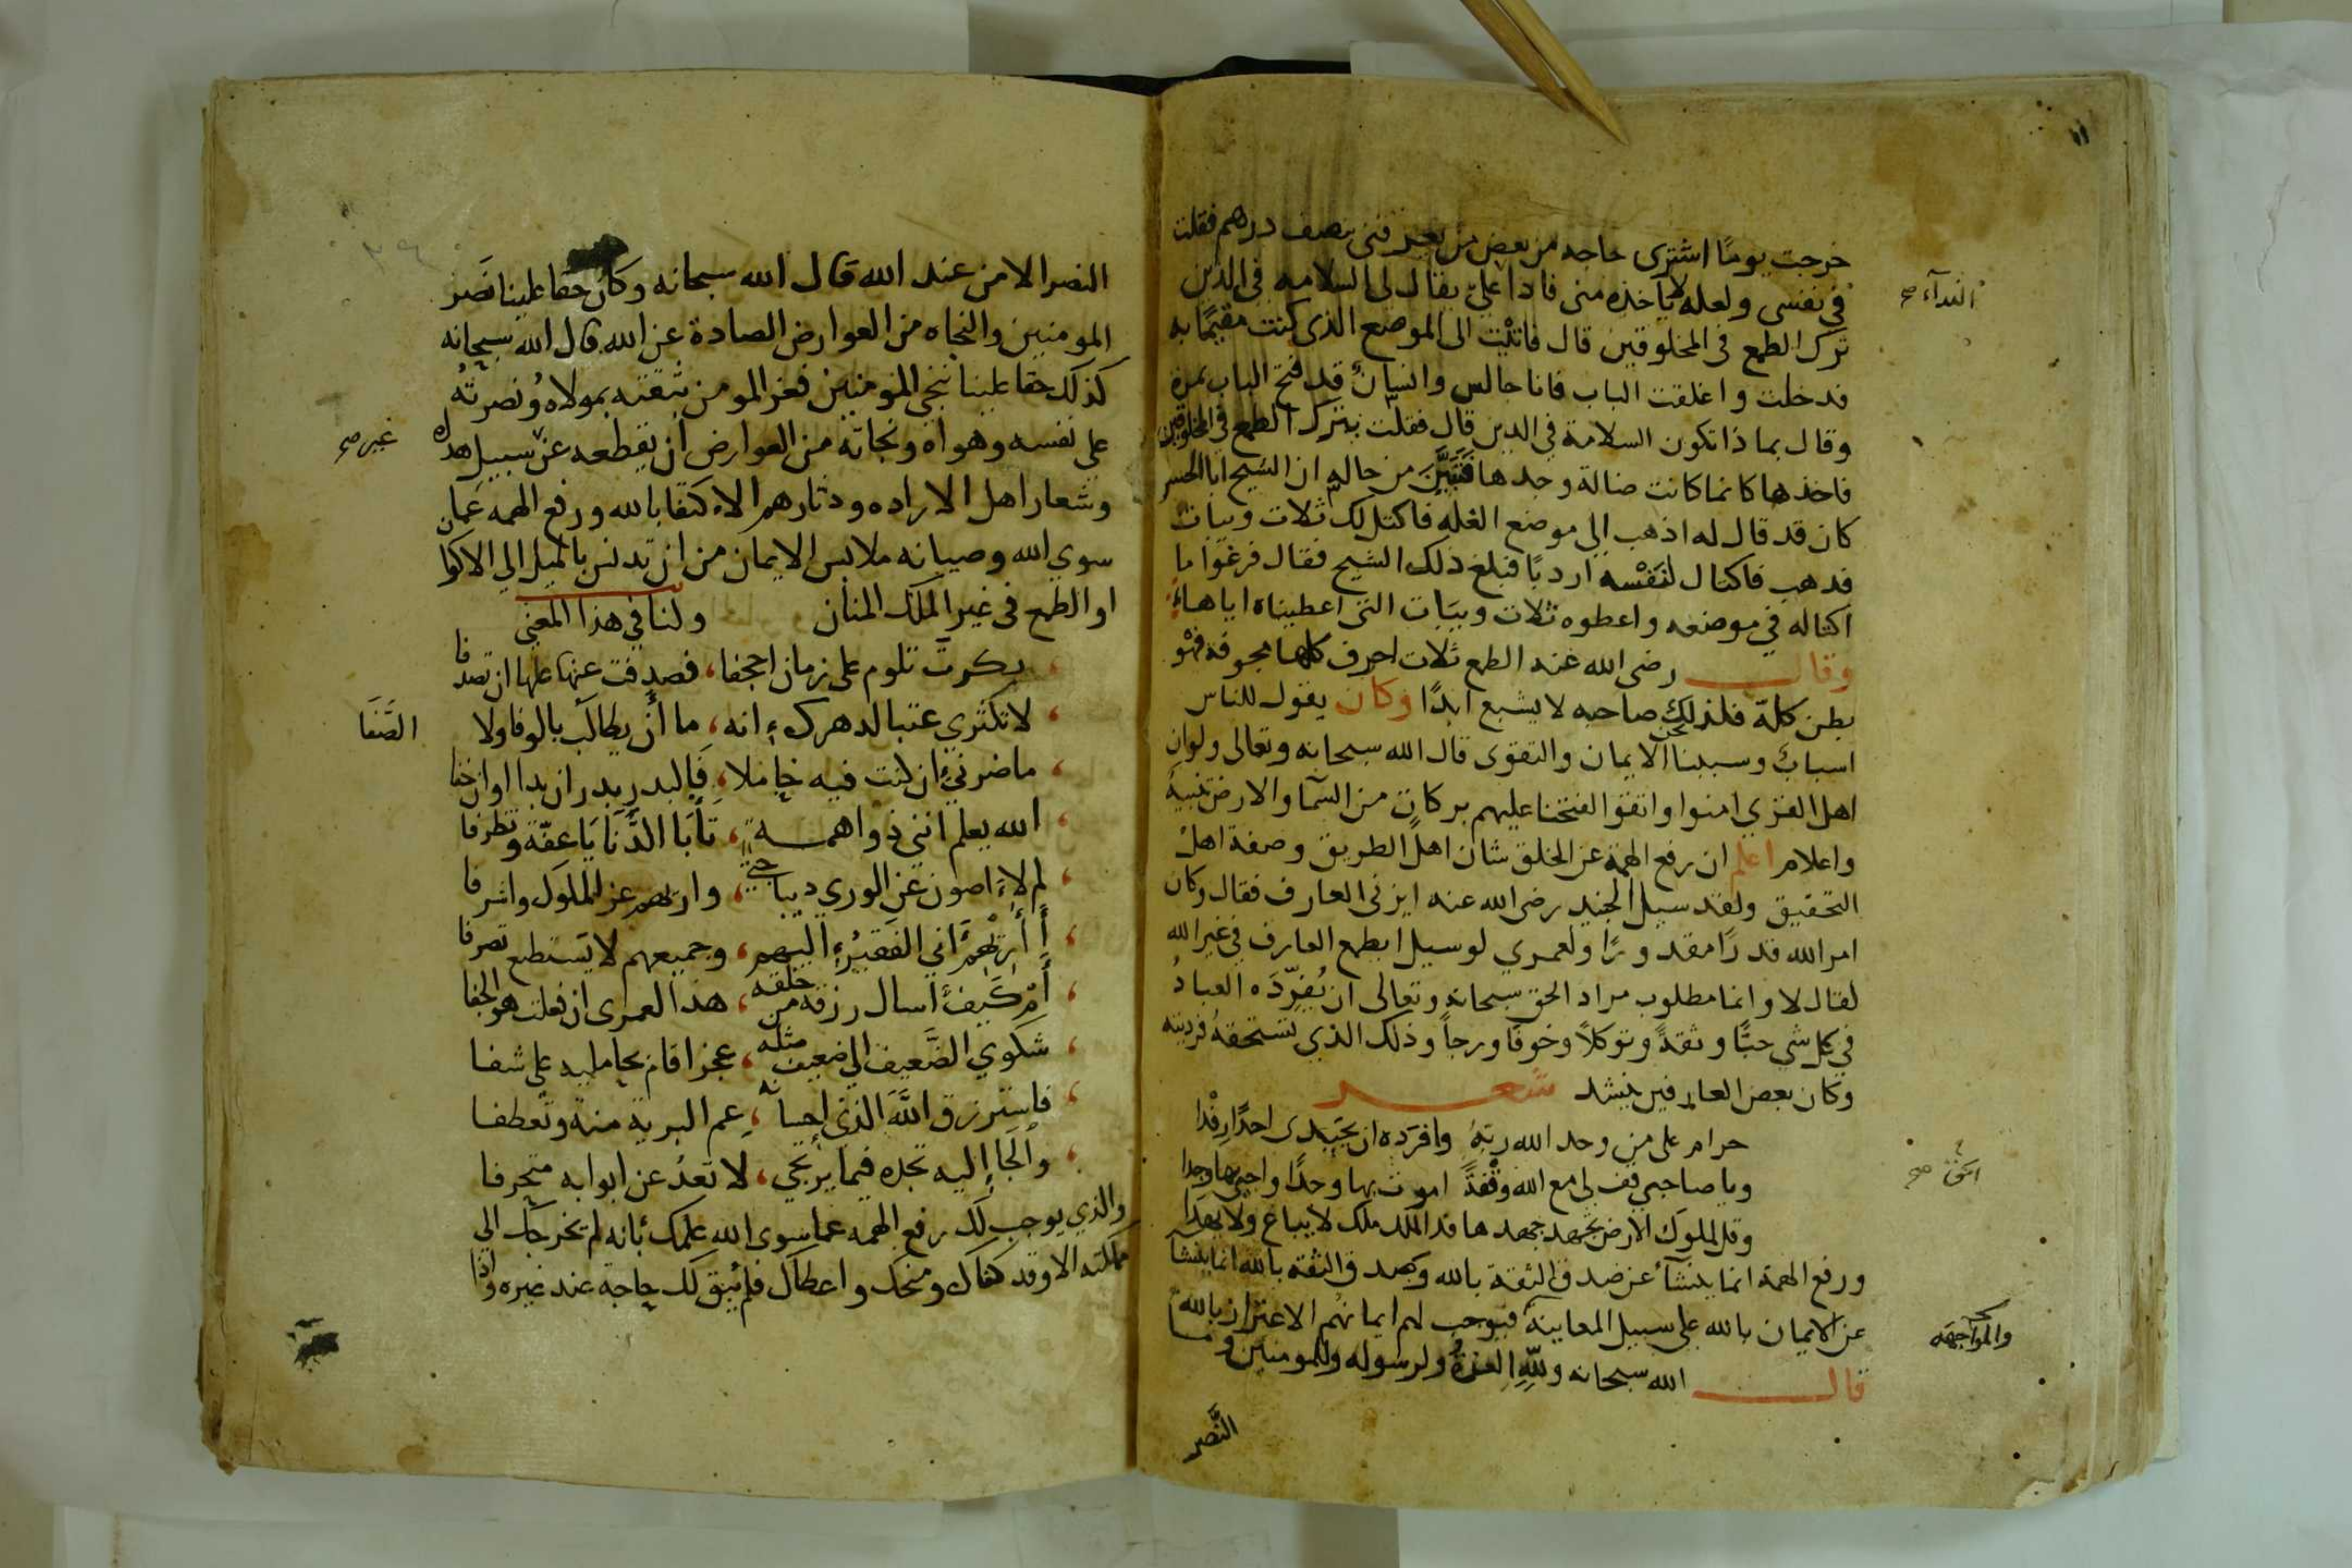 خرجت يومًا اشترى حاجه من بعض من يعرفنى بنصف درهم فقلت
في نفسى ولعله لا ياخذه منى فاذا علىّ يقال لى السلامه فى الدين
ترك الطمع فى المخلوقين قال فاتيْت الى الموضع الذى كنت مقيمًا به
فدخلت واغلقت الباب فانا جالس وانسانٌ قد فتح الباب بمرة
وقال بما ذا تكون السلامة في الدين قال فقلت بترك الطمع فى المخلوقين
فاخذها كانما كانت ضالة وجدها فتبيَّن من حاله ان الشيخ ابا الحسن
كان قد قال له اذهب الى موضع الغله فاكتل لك ثلاث ويبات
فذهب فاكتال لنَفْسه اردبًا فبلغ ذلك الشيخ فقال فرغوا ما
اكتاله في موضعه واعطوه ثلاث ويبَات التى اعطيناه اياها
وقال رضى الله عنه الطمع ثلاث احرف كلها مجوفة فهْو
بطن كلهّ فلذلك صاحبه لا يشبع ابدًا وكان يقول للناس
اسبابٌ وسببنا نحن الايمان والتقوى قال الله سبحانه وتعالى ولو ان
اهل القرى امنوا واتقوا لفتحنا عليهم بركات من السّما والارض تنبيهٌ
واعلام اعلم ان رفع الهمة عن الخلق شان اهل الطريق وصفة اهل
التحقيق ولقد سيل الجنيد رضى الله عنه ايزنى العارف فقال وكان
امر الله قدرًا مقدورًا ولعمري لو سيل ايطمع العارف في غير الله
لقال لا وانما مطلوب مراد الحق سبحانه وتعالى ان يُفرِّدَه العبادُ
في كل شى حبًّا وثقةً وتوكلاً وخوفًا ورجاً وذلك الذي تستحقهُ فرديته
وكان بعض العارفين ينشد شعر
حرام على من وحد الله ربّهُ وافرَده ان يجتدى احدًا رِفْدا
ويا صاحبي قف لى مع الله وقْفةً اموت بها وجدًا واحيى بها وجدا
وقل لملوك الارض تجهد جهدها فذا الملك ملك لا يباع ولا يهدَا
ورفع الهمة انما ينشأ عن صدق الثقة بالله وصدق الثقة بالله انما ينشا
عن الايمان بالله على سبيل المعاينة فيوجب لهم ايمانهُم الاعتزاز بالله
قال الله سبحانه وللهِ العزةُ ولرسوله وللمومنين وما
النَّصر
النداء صح
صح
والمواجهه
النصر الا من عند الله قال الله سبحانه وكان حقا علينا نَصْر
المومنين والنجاه من العوارض الصادة عن الله قال الله سبحانه
كذلك حقا علينا ننجى المومنين فعز المومن بثقته بمولاه ونصرتهُ
على نفسه وهواه ونجاته من العوارض ان يقطعه عن سبيل هداه
وشعار اهل الاراده ودثارهم الاكتفا بالله ورفع الهمه عمان
سوي الله وصيانه ملابس الايمان من ان تدنس بالميل الي الاكوا
او الطمع فى غير الملك المنان ولنا في هذا المعني
بكرت تلوم على زمان اجحفا، فصدفت عنها علها ان تصدفا
لا تكثري عتبا لدهرك انه، ما أن يطالَب بالوفا ولا
الصَّفَا
ما ضرنيّ ان كنت فيه خاملا، فالبدر بدر ان بدا اوان خفا
الله يعلم اننى ذوا همة، تأبَا الدَّنَايَا عفّة وتظرفا
لم لاءَ اصون عن الوري ديباجتي، واريهم عز الملوك واشرفا
أأُرِيْهِم اني الفَقِيرُ اليهم، وجميعهم لا يَستطع تصرفا
أَمْ كَيفَ أسال رزقه من خلقه، هذا لعمرى ان فعلت هو الجفا
شكوي الضَّعيف الي ضعيف مثله، عجز اقام بحامليه على شفا
فاسترزق اللّهَ الذى احسانه، عم البرية منة وتعطفا
والجَا إليه تجده فيما يرتجي، لا تعدُ عن ابوابه متحرفا
والذي يوجب لك رفع الهمه عما سوى الله علمك بأنه لم يخرجك الي
مملكته الا وقد كفاك ومنحك واعطاك فلم يبق لك حاجة عند غيره واذا
غير صح